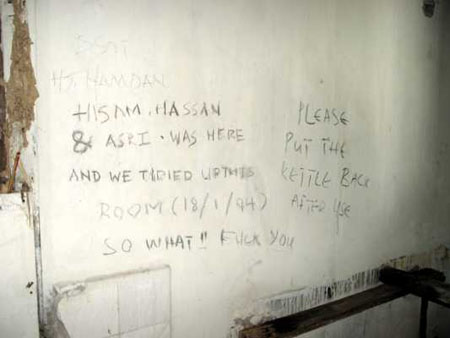 HJ. HAMDAN
HISAM. HASSAN
& ASRI. WAS HERE
AND WE TIRIED UP THIS
ROOM (18/1/94)
SO WHAT!! FUCK YOU
PLEASE
PUT THE
KETTLE BACK
AFTED USE